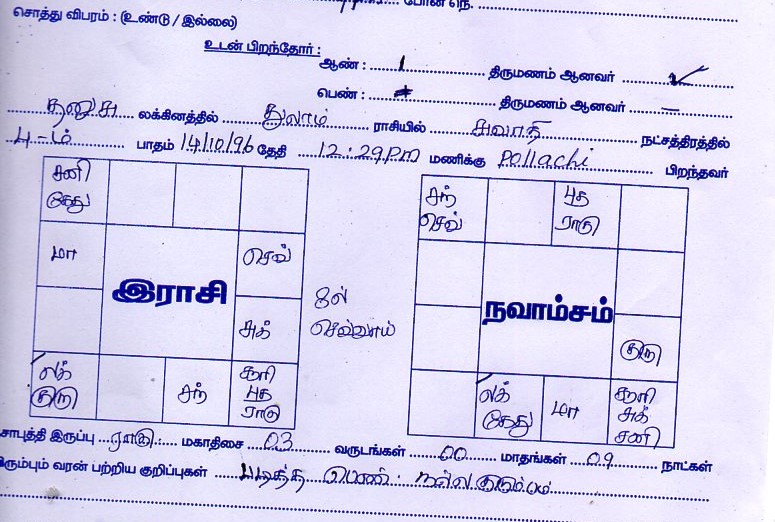 போன் நெ.
சொத்து விபரம் : (உண்டு / இல்லை)
உடன் பிறந்தோர் :
ஆண் : 1 திருமணம் ஆனவர் 1
பெண் : திருமணம் ஆனவர் —
தனுசு லக்கினத்தில் துலாம் ராசியில் சுவாதி நட்சத்திரத்தில்
4-ம் பாதம் 14/10/96 தேதி 12:29pm மணிக்கு Pollachi பிறந்தவர்
சனி
கேது
மா செவ்
இராசி
சுக்
லக்
குரு
சந்
சூரி
புத
ராகு
8ல்
செவ்வாய்
சந்
செவ்
புத
ராகு
நவாம்சம்
குரு
லக்
கேது
மா
சூரி
சுக்
சனி
சாபுத்தி இருப்பு ராகு மகாதிசை 03 வருடங்கள் 00 மாதங்கள் 09 நாட்கள்
ரும்பும் வரன் பற்றிய குறிப்புகள் படித்த பெண். நல்ல குடும்பம்